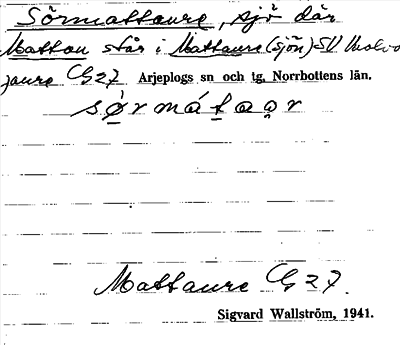 Sörmattaure, sjö där
Mattau står i Mattaure (sjön) SV
jaure CG 27 Arjeplogs sn och tg, Norrbottens län.
Mattaure CG 27.
Sigvard Wallström, 1941.